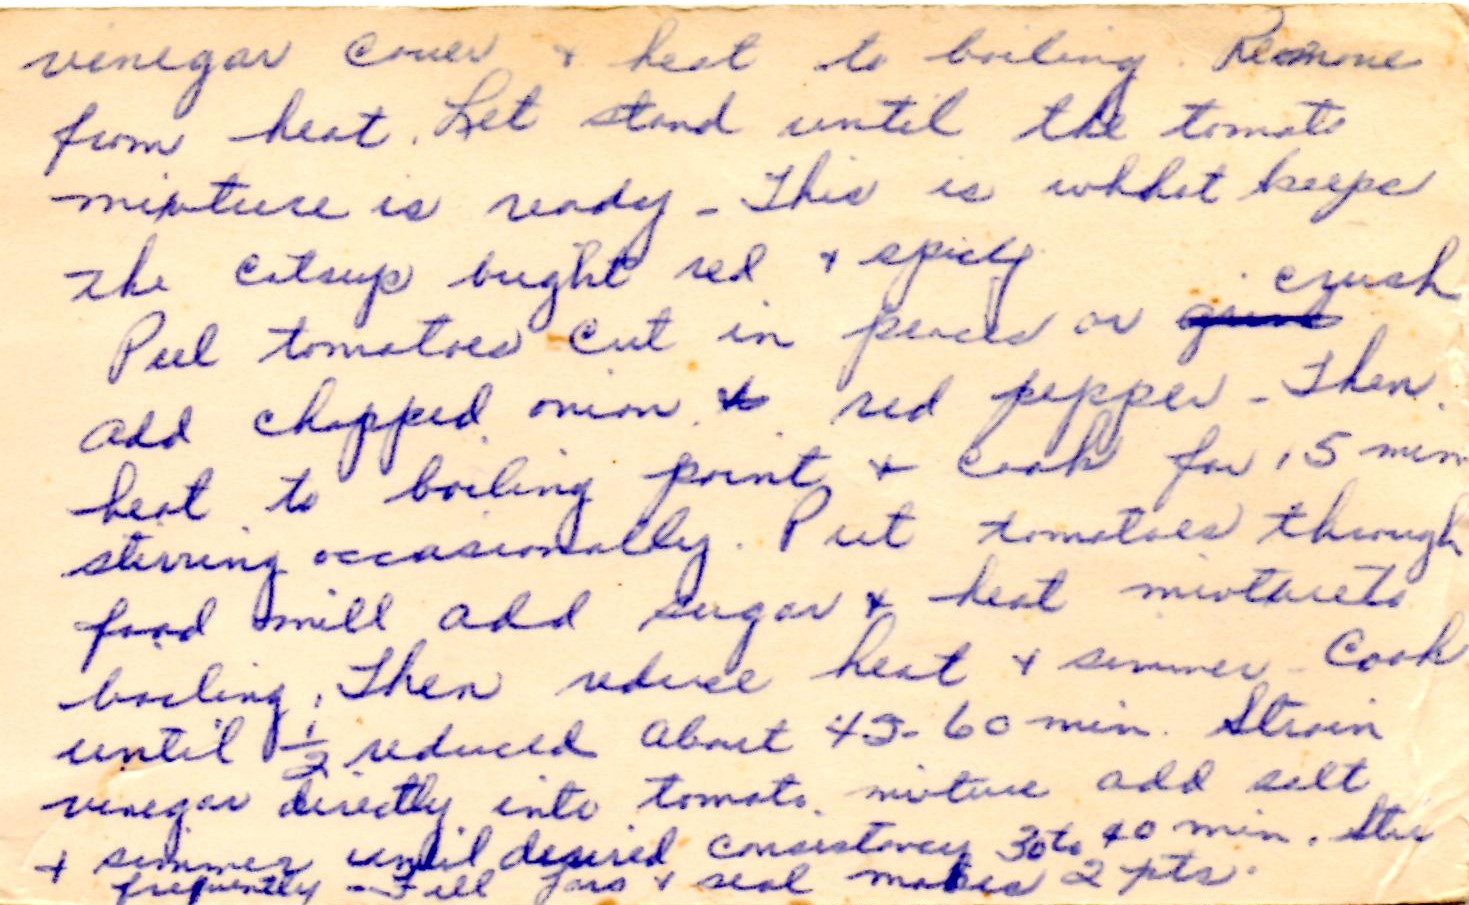 vinegar cover + heat to boiling. Remove
from heat. Let stand until the tomato
mixture is ready - This is whhat keeps
the catsup bright red + spicy.
crush
Peel tomatoes cut in peaces or
add chopped onion & red pepper - Then
heat to boiling point + cook for 15 min
stirring occasionally. Put tomatoes through
food mill add sugar + heat mixture to
boiling. Then reduce heat + simmer - Cook
until 1/2 reduced about 45-60 min. Strain
vinegar directly into tomato mixture add salt
+ simmer until desired consistancy 30 to 40 min. Stir
frequently - Fill jars + seal makes 2 pts.